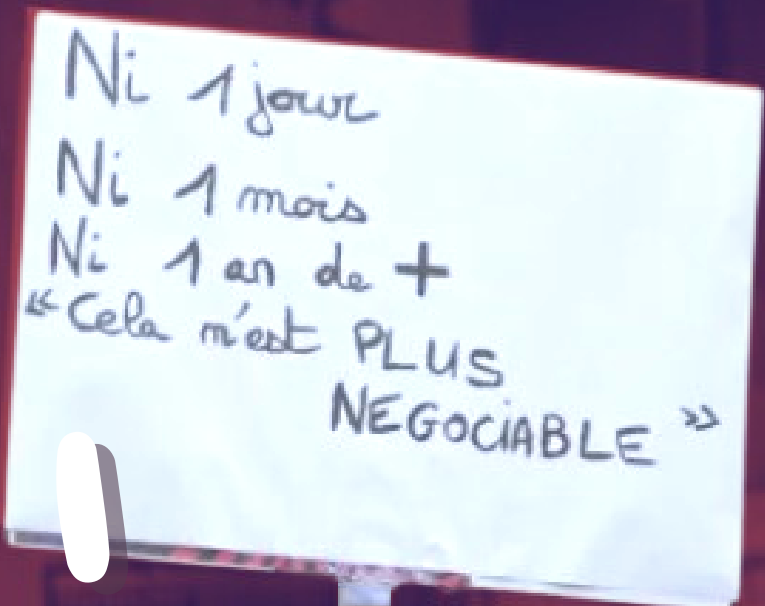 Ni 1 jour
Ni 1 mois
Ni 1 an de +
« Cela n'est PLUS
NEGOCiABLE »